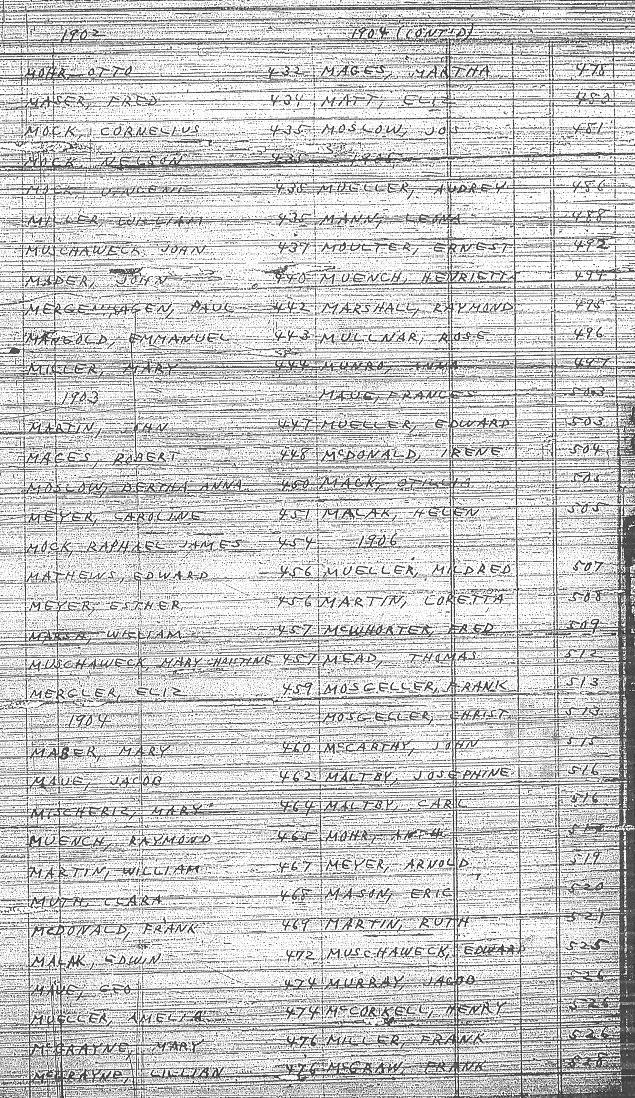 1902
MOHR, OTTO 432
MASER, FRED 434
MOCK, CORNELIUS 435
MOCK, NELSON 435
MOCK, VINCENT 435
MILLER, WILLIAM 435
MUSCHAWECK, JOHN 437
MADER, JOHN 440
MERGENHAGEN, PAUL 442
MANGOLD, EMMANUEL 443
MILLER, MARY 444
1903
MARTIN, JOHN 447
MAGES, ROBERT 448
MOSLOW, BERTHA ANNA 450
MEYER, CAROLINE 451
MOCK, RAPHAEL JAMES 454
MATHEWS, EDWARD 456
MEYER, ESTHER 456
MARSH, WILLIAM 457
MUSCHAWECK, MARY CHRISTINE 457
MERCLER, ELIZ 459
1904
MABER, MARY 460
MAUE, JACOB 462
MARY 464
MUENCH, RAYMOND 465
MARTIN, WILLIAM 467
MUTH, CLARA 468
McDONALD, FRANK 469
MALAK, EDWIN 472
MAUE, GEO 474
MUELLER, AMELIA 474
McGRAYNE, MARY 476
McGRAYNE, LILLIAN 476
1904 (CONT'D)
MAGES, MARTHA 478
MATT, ELIZ
MOSLOW, JOS 481
1905
MUELLER, AUDREY 486
MANN, LEONA 488
MOULTER, ERNEST 492
MUENCH, HENRIETTA
MARSHALL, RAYMOND 495
MULLNAR, ROSE 496
MUNRO, ANNA 497
MAUE, FRANCES 503
MUELLER, EDWARD 503
McDONALD, IRENE 504
MACK, OTILLIA 505
MALAK, HELEN 505
1906
MUELLER, MILDRED 507
MARTIN, LORETTA 508
McWHORTER, FRED 509
MEAD, THOMAS 512
MOSGELLER, FRANK 513
MOSGELLER, CHRIST. 513
McCARTHY, JOHN 515
MALTBY, JOSEPHINE 516
MALTBY, CARL 516
MOHR, ANTH. 517
MEYER, ARNOLD 519
MASON, ERIC 520
MARTIN, RUTH 521
MUSCHAWECK, EDWARD 525
MURRAY, JACOB 526
McCORKELL, HENRY 526
MILLER, FRANK 526
McGRAW, FRANK 528